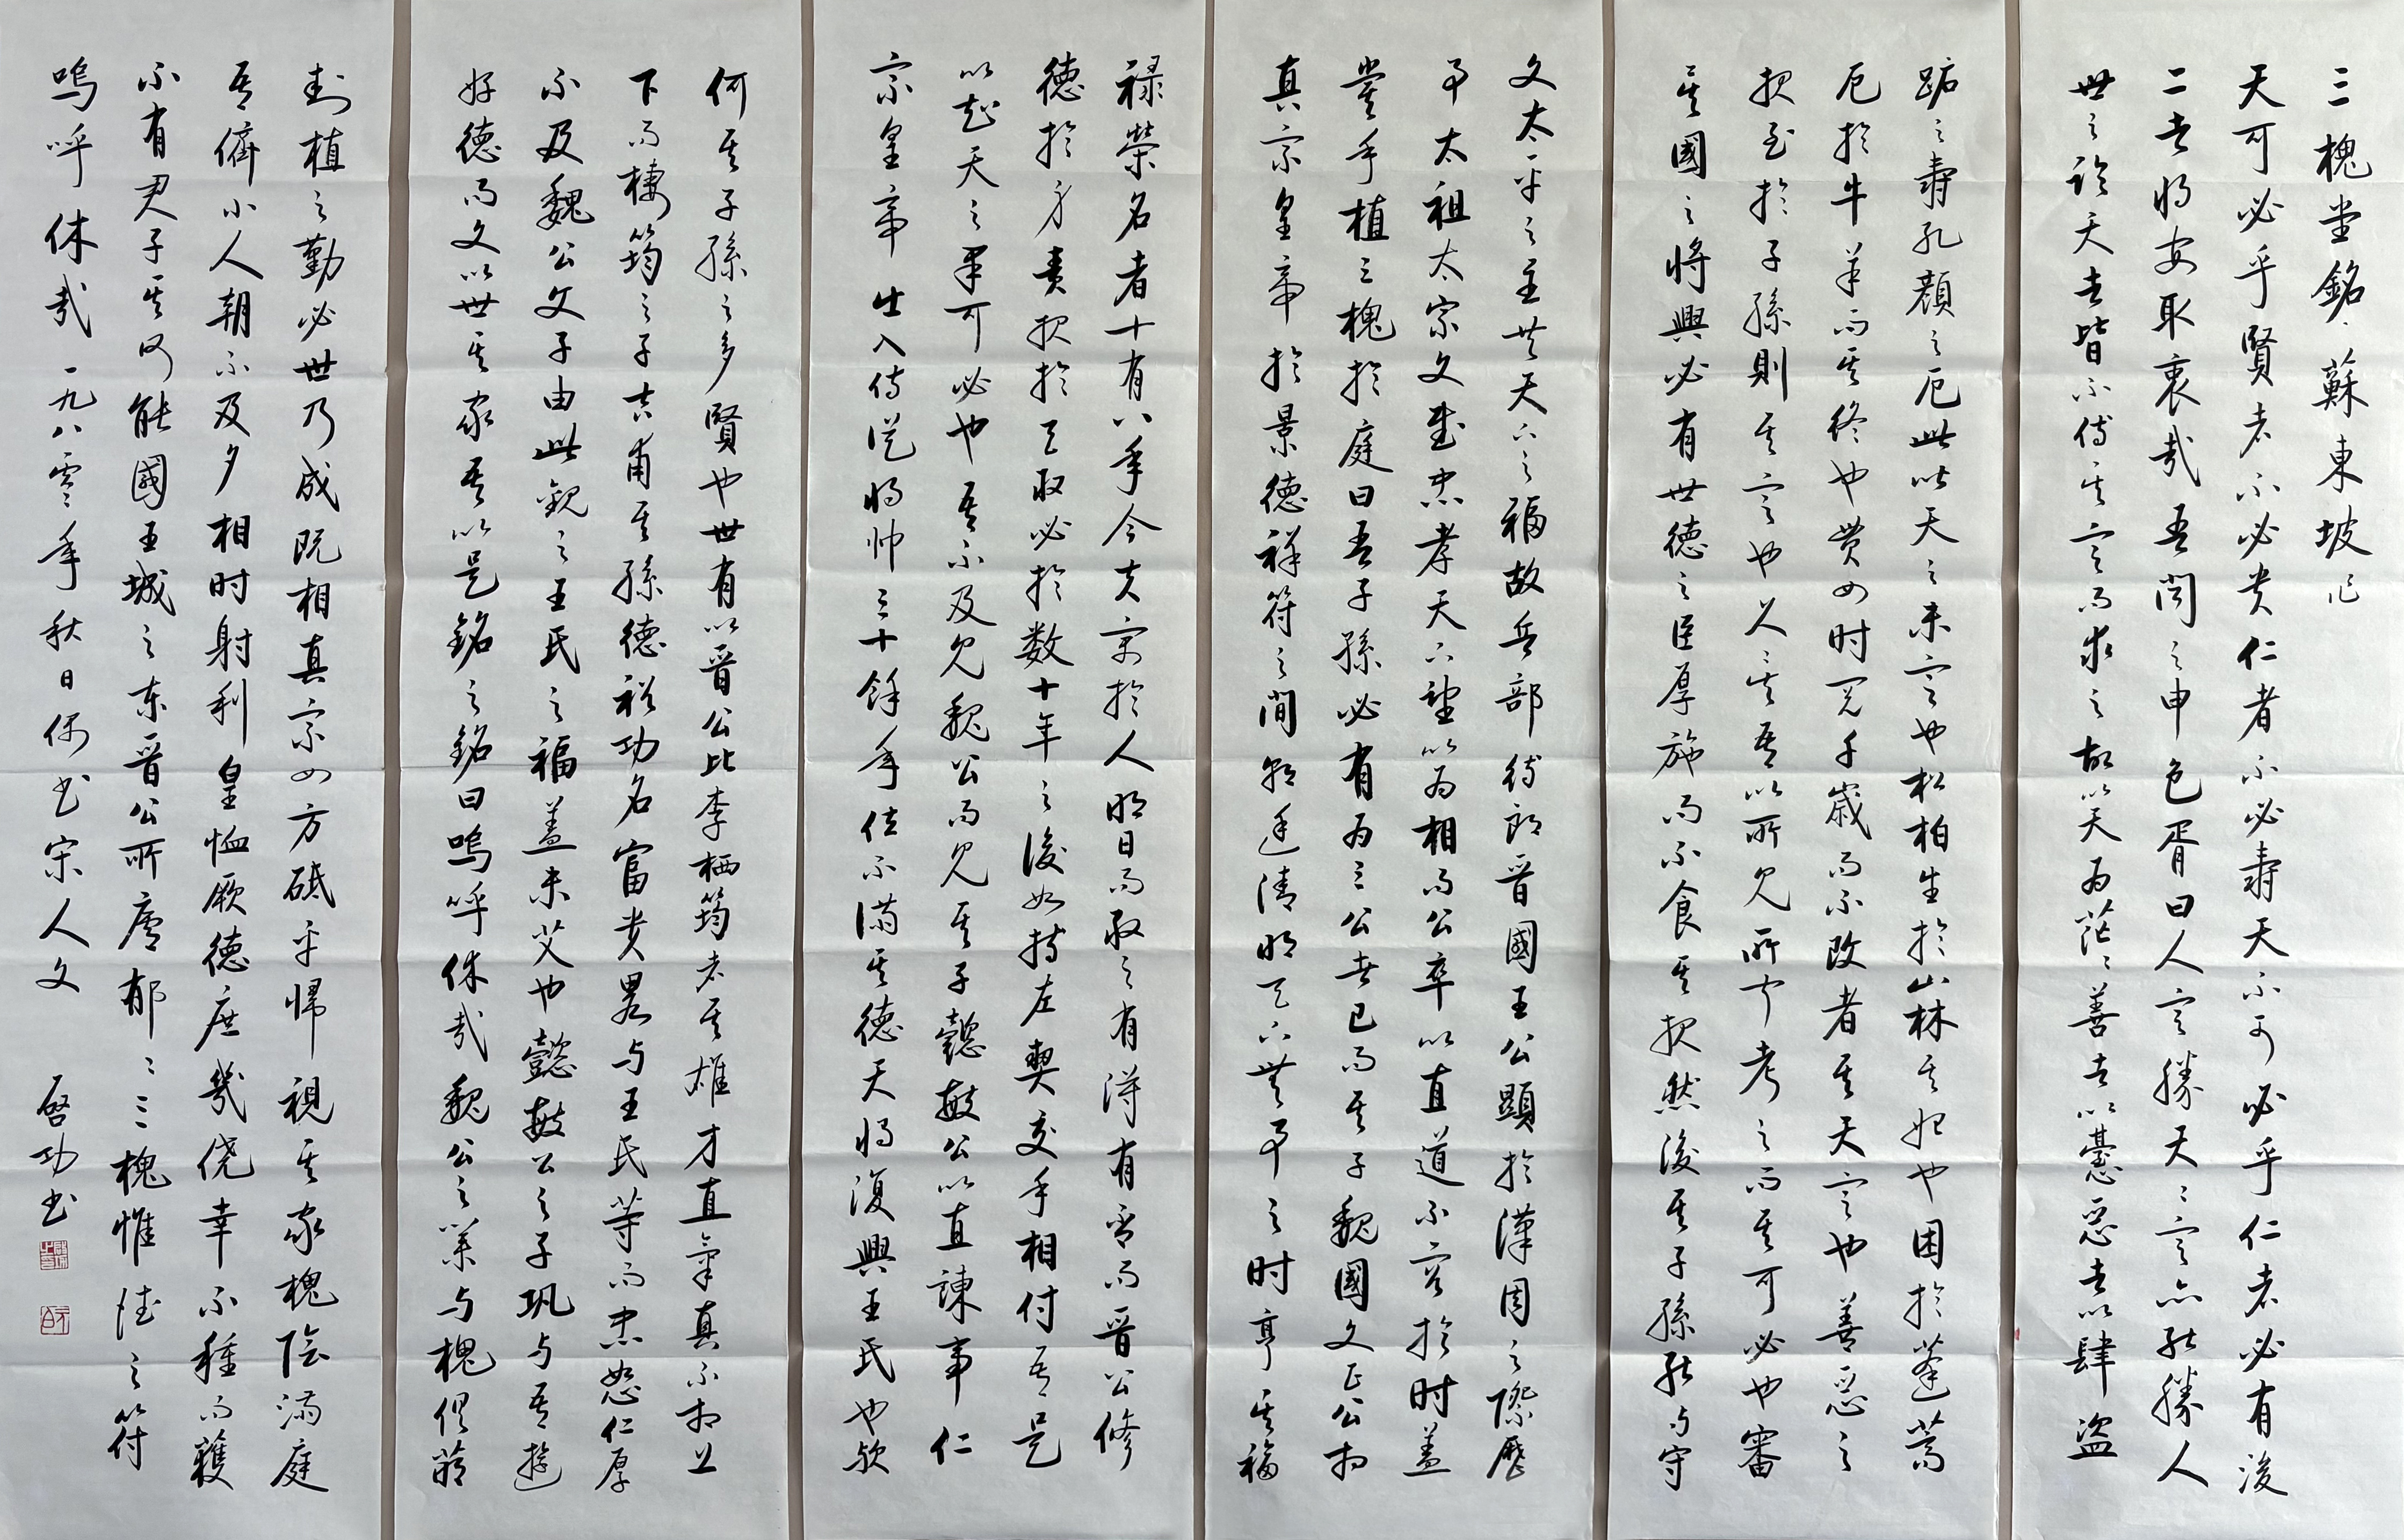 三槐堂銘 蘇東坡記
天可必乎賢者不必贵仁者不必壽天不可必乎仁者必有後
二者將安取衷哉吾闻之申包胥曰人定勝天天定亦能勝人
世之论天者皆不待其定而求之故以天為茫茫善者以怠恶者以肆盜
跖之壽孔顏之厄此皆天之未定也松柏生於山林其始也困於蓬蒿
厄於牛羊而其终也贯四时阅千歲而不改者其天定也善恶之
报至於子孫則其定也久矣吾以所见所闻考之而其可必也審
矣國之將興必有世德之臣厚施而不食其报然後其子孫能与守
文太平之主共天下之福故兵部侍郎晋國王公顯於漢周之際歷
事太祖太宗文武忠孝天下望以为相而公卒以直道不容於时盖
嘗手植三槐於庭曰吾子孫必有为三公者已而其子魏國文正公相
真宗皇帝於景德祥符之間朝廷清明天下無事之时享其福
禄榮名者十有八年今夫寓於人明日而取之有得有否而晋公修
德於身责报於天取必於数十年之後如持左契交手相付吾是
以知天之果可必也吾不及见魏公而见其子懿敏公以直諫事仁
宗皇帝出入侍從将帅三十餘年位不满其德天将復興王氏也欤
何其子孫之多賢也世有以晋公比李栖筠者其雄才直氣真不相上
下而棲筠之子吉甫其孫德裕功名富贵畧与王氏等而忠恕仁厚
不及魏公父子由此觀之王氏之福盖未艾也懿敏公之子巩与吾遊
好德而文以世其家吾以是銘之銘曰嗚呼休哉魏公之業与槐俱萌
封植之勤必世乃成既相真宗四方砥平帰視其家槐陰满庭
吾儕小人朝不及夕相时射利皇恤厥德庶幾僥幸不種而穫
不有君子其何能國王城之东晋公所廬郁郁三槐惟德之符
嗚呼休哉 一九八零年秋日偶书宋人文 啓功书